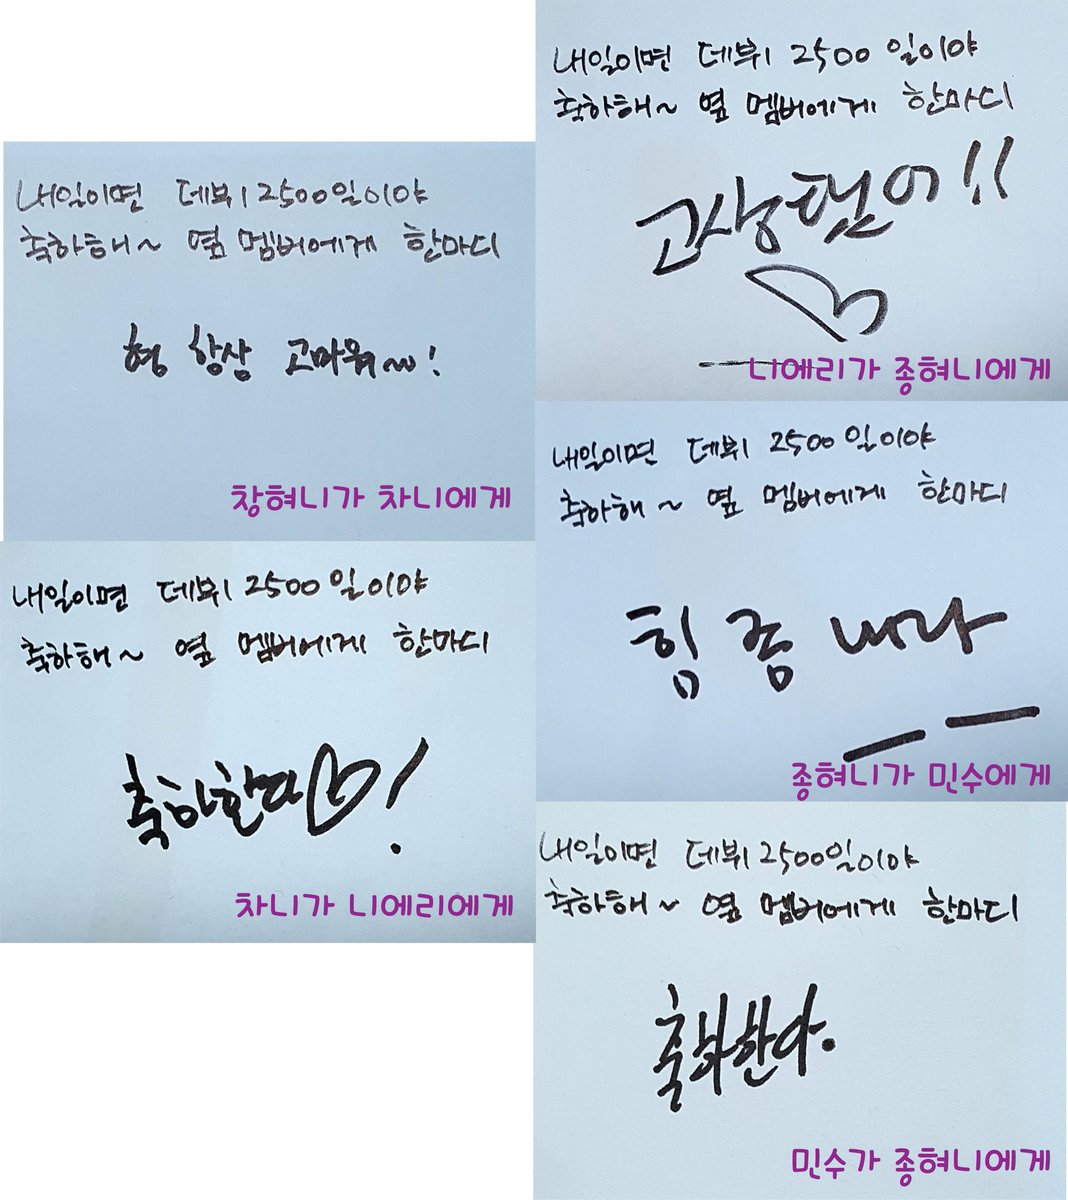 내일이면 데뷔 2500일이야
축하해~ 옆 멤버에게 한마디
형 항상 고마워~!
창혀니가 차니에게
내일이면 데뷔 2500일이야
축하해~ 옆 멤버에게 한마디
축하한다♡!
차니가 니에리에게
내일이면 데뷔 2500일이야
축하해~ 옆 멤버에게 한마디
고생했어!!
♡
니에리가 종혀니에게
내일이면 데뷔 2500일이야
축하해~ 옆 멤버에게 한마디
힘 좀 내라
종혀니가 민수에게
내일이면 데뷔 2500일이야
축하해~ 옆 멤버에게 한마디
축하한다.
민수가 종혀니에게